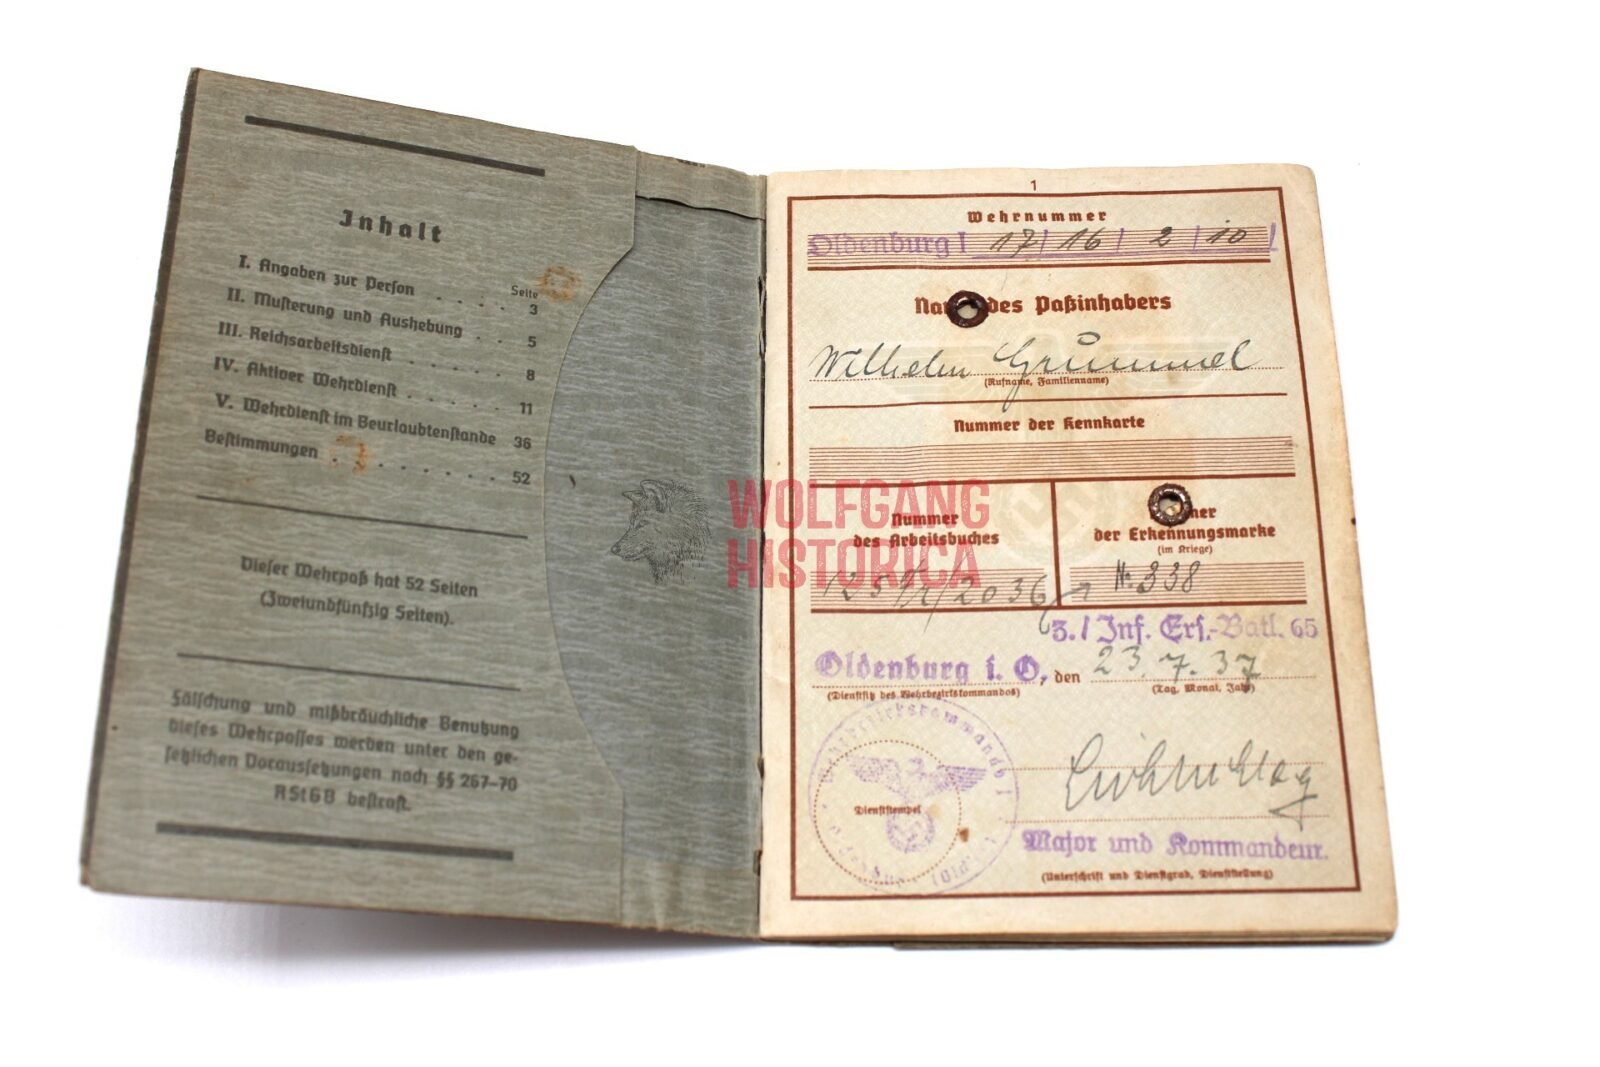 Inhalt
Seite
I. Angaben zur Person . . . . . 3
II. Musterung und Aushebung . . 5
III. Reichsarbeitsdienst . . . . . . 8
IV. Aktiver Wehrdienst . . . . . . 11
V. Wehrdienst im Beurlaubtenstande 36
Bestimmungen . . . . . . . . . 52
Dieser Wehrpaß hat 52 Seiten
(Zweiundfünfzig Seiten).
Fälschung und mißbräuchliche Benutzung
dieses Wehrpasses werden unter den ge-
setzlichen Voraussetzungen nach §§ 267-70
RStGB bestraft.
1
Wehrnummer
Oldenburg I 17/ 16 / 2 / 10 /
des Paßinhabers
Wilhelm Grümmel
(Rufname, Familienname)
Nummer der Kennkarte
Nummer
des Arbeitsbuches
der Erkennungsmarke
(im Kriege)
Nr. 338
3./ Inf. Ers.-Batl. 65
Oldenburg i. O, den 23.7.37
(Dienstsitz des Wehrbezirkskommandos)
(Tag, Monat, Jahr)
Wehrbezirkskommando I
Dienststempel
Major und Kommandeur.
(Unterschrift und Dienstgrad, Dienststellung)
WOLFGANG
HISTORICA